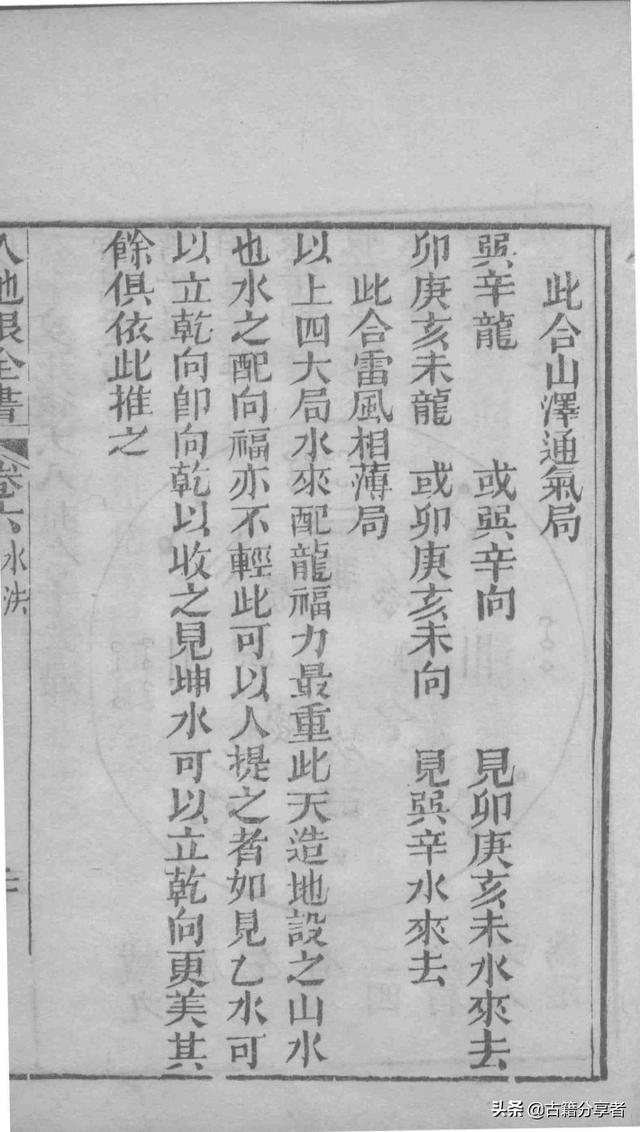 此合山澤通氣局
巽辛龍 或巽辛向 見卯庚亥未水來去
卯庚亥未龍 或卯庚亥未向 見巽辛水來去
此合雷風相薄局
以上四大局水來配龍福力最重此天造地設之山水
也水之配向福亦不輕此可以人提之者如見乙水可
以立乾向卽向乾以收之見坤水可以立乾向更美其
餘俱依此推之
人地眼全書 卷六 水法
头条 @古籍分享者